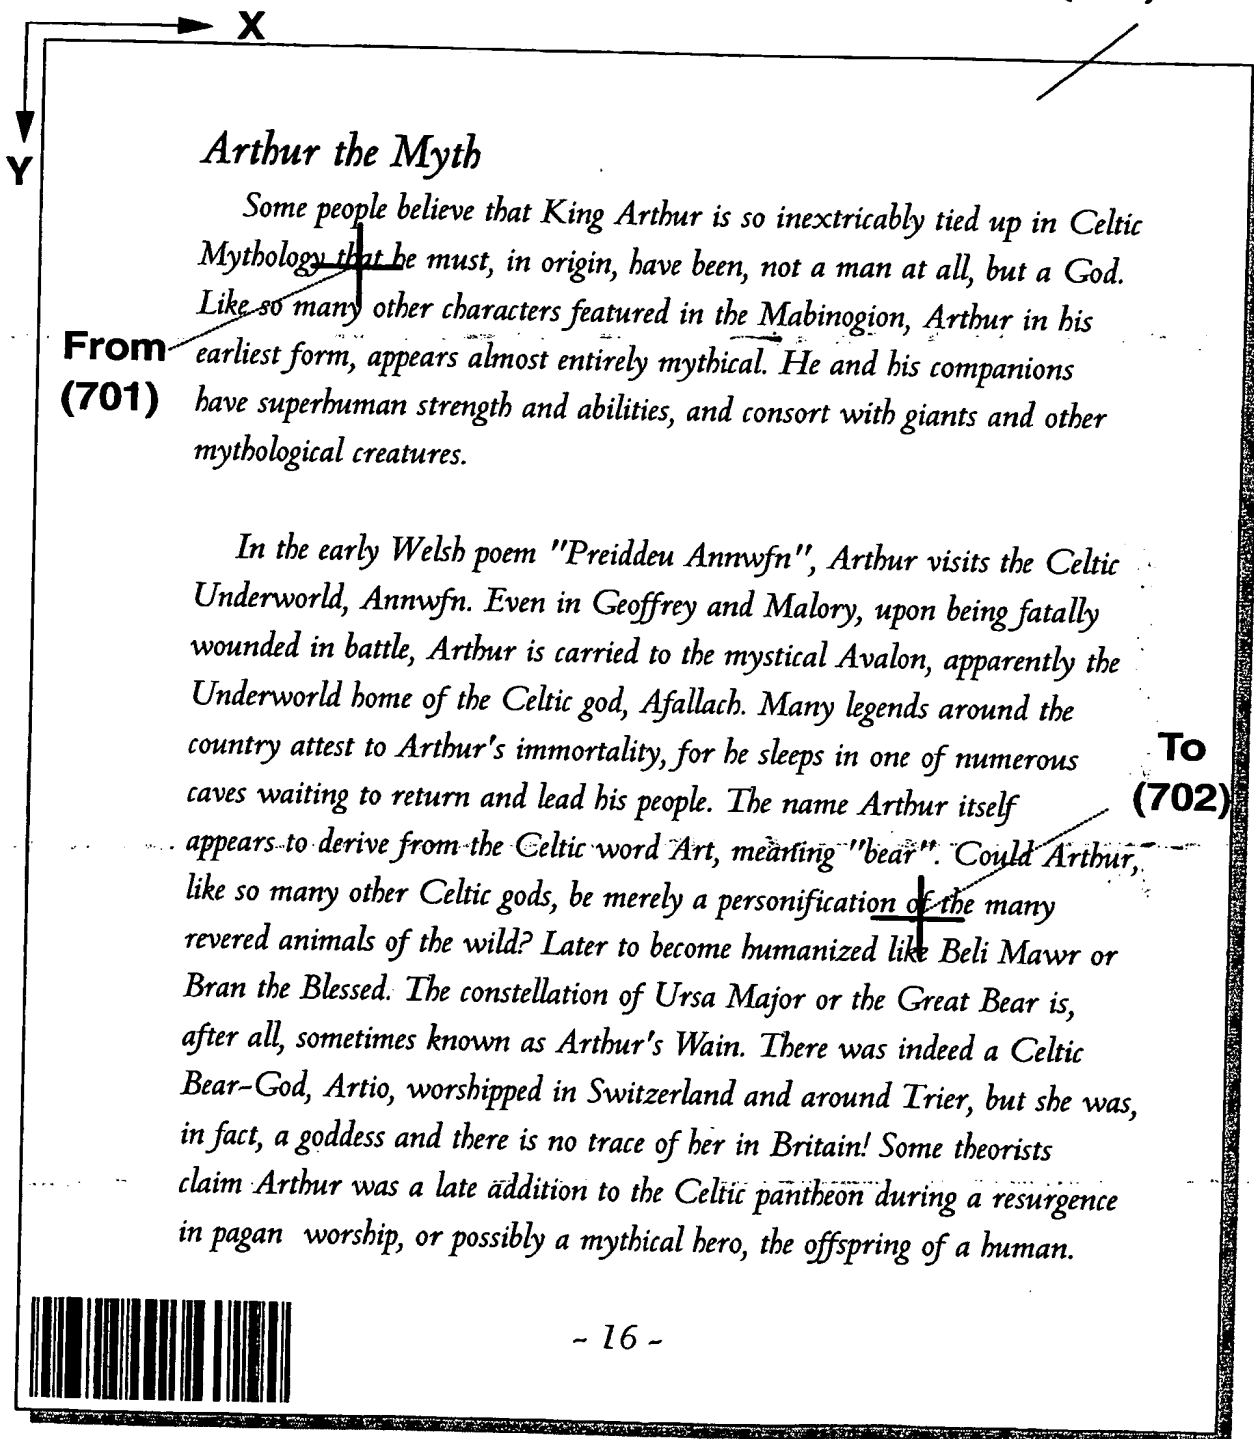 X
Y
Arthur the Myth
Some people believe that King Arthur is so inextricably tied up in Celtic
Mythology that he must, in origin, have been, not a man at all, but a God.
Like so many other characters featured in the Mabinogion, Arthur in his
earliest form, appears almost entirely mythical. He and his companions
have superhuman strength and abilities, and consort with giants and other
mythological creatures.
From
(701)
In the early Welsh poem "Preiddeu Annwfn", Arthur visits the Celtic
Underworld, Annwfn. Even in Geoffrey and Malory, upon being fatally
wounded in battle, Arthur is carried to the mystical Avalon, apparently the
Underworld home of the Celtic god, Afallach. Many legends around the
country attest to Arthur's immortality, for he sleeps in one of numerous
caves waiting to return and lead his people. The name Arthur itself
appears to derive from the Celtic word Art, meaning "bear". Could Arthur,
like so many other Celtic gods, be merely a personification of the many
revered animals of the wild? Later to become humanized like Beli Mawr or
Bran the Blessed. The constellation of Ursa Major or the Great Bear is,
after all, sometimes known as Arthur's Wain. There was indeed a Celtic
Bear-God, Artio, worshipped in Switzerland and around Trier, but she was,
in fact, a goddess and there is no trace of her in Britain! Some theorists
claim Arthur was a late addition to the Celtic pantheon during a resurgence
in pagan worship, or possibly a mythical hero, the offspring of a human.
To
(702)
- 16 -